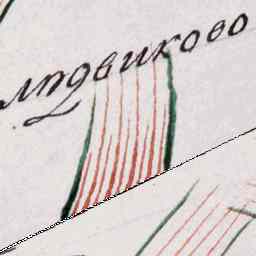 людвиково